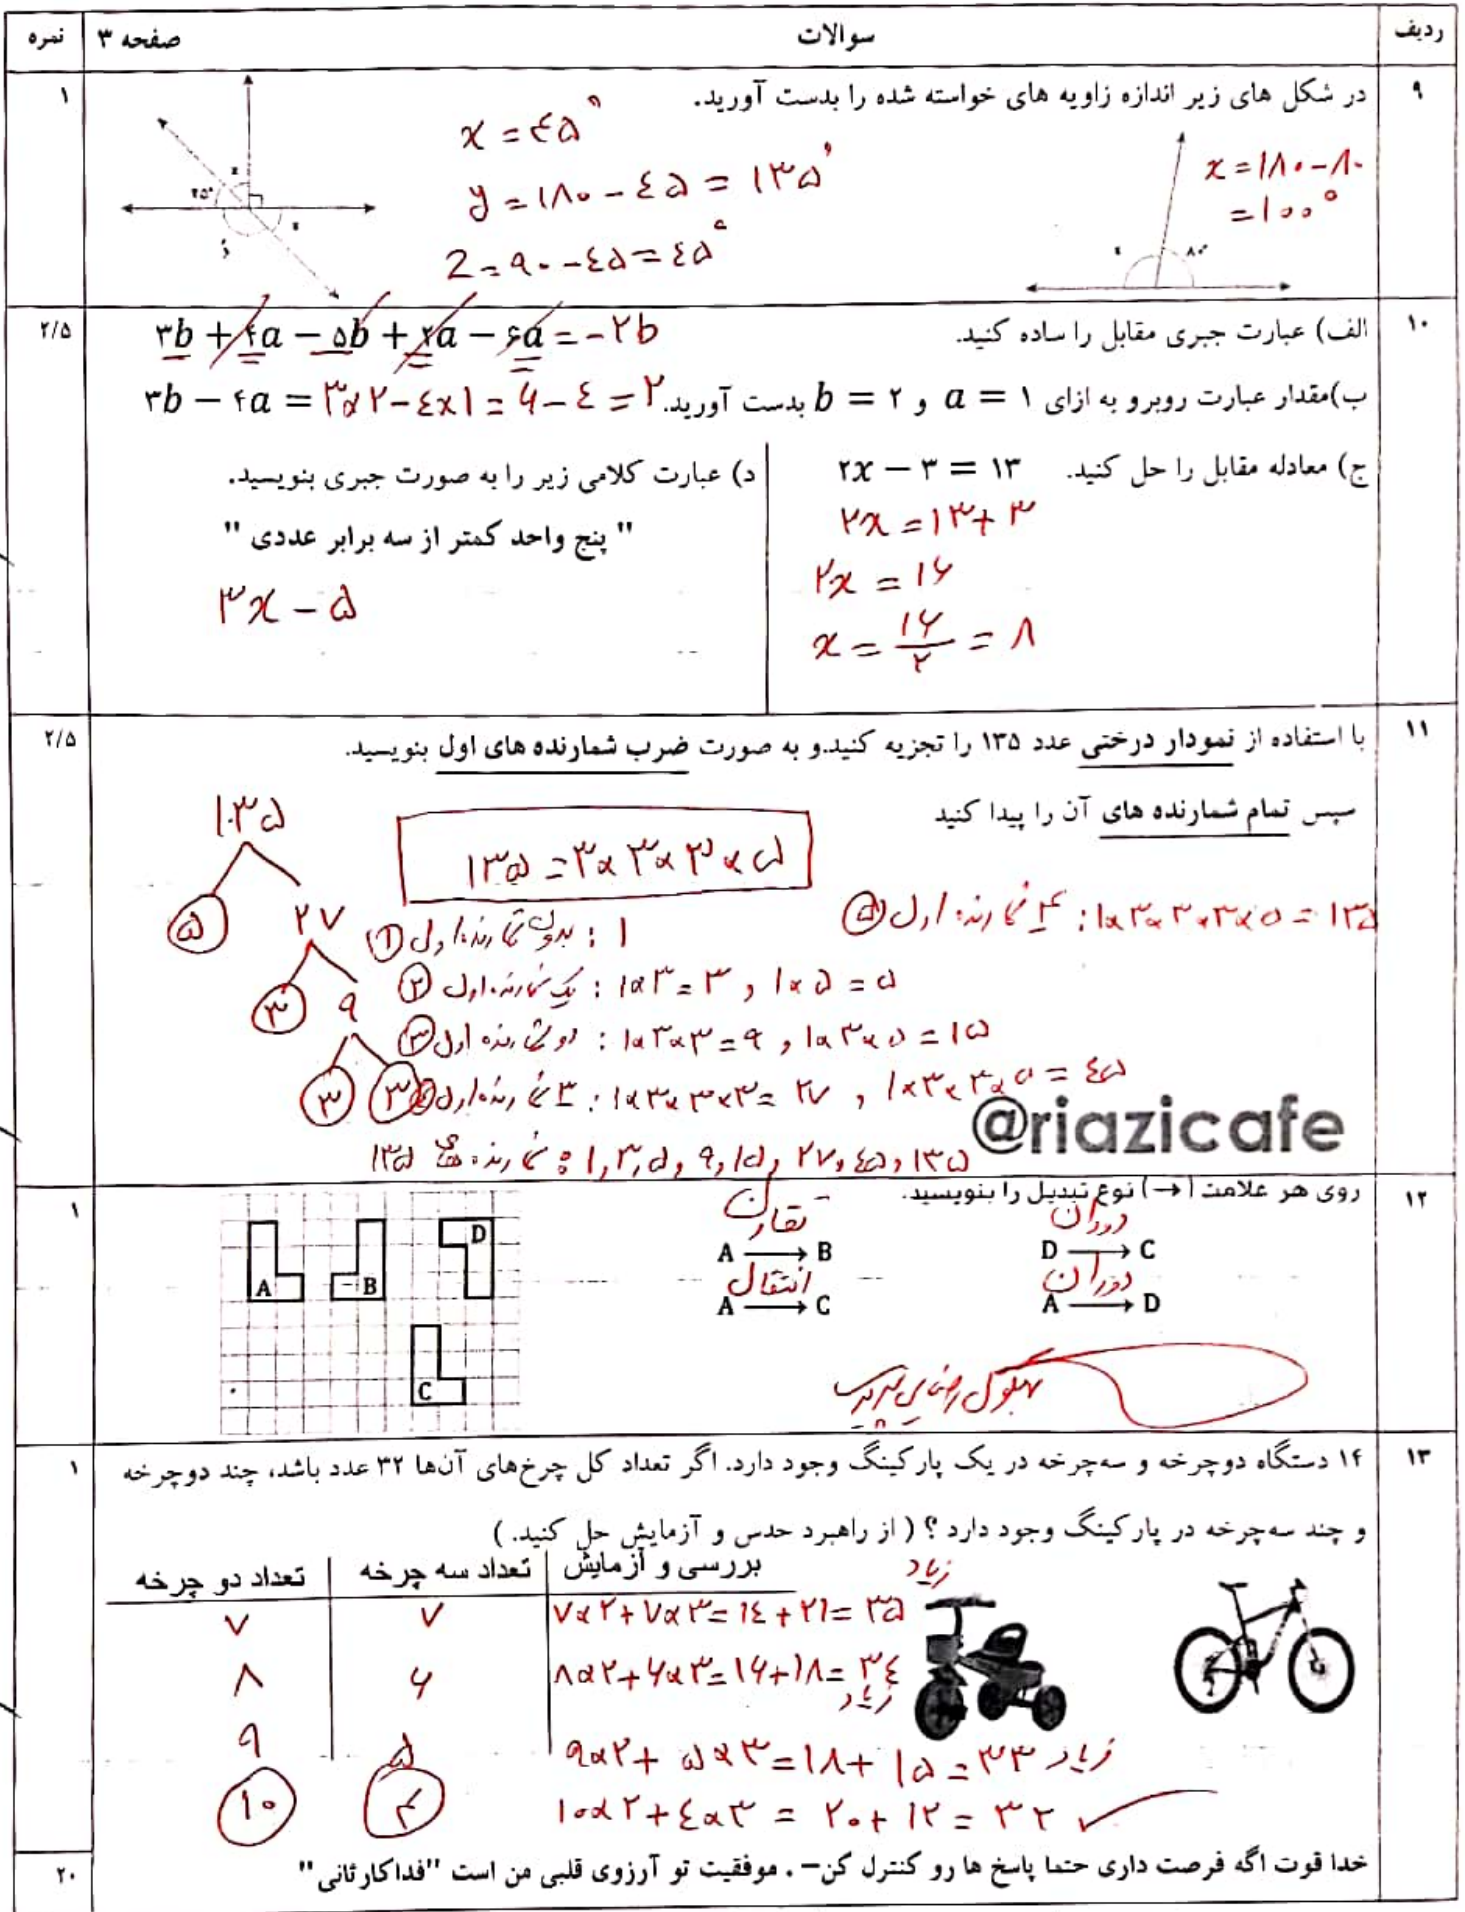 ردیف سوالات صفحه ۳ نمره
۹ در شکل های زیر اندازه زاویه های خواسته شده را بدست آورید. ۱
x = ۱۸۰ - ۸۰
= ۱۰۰°
۸۰°
x
x = ۴۵°
y = ۱۸۰ - ۴۵ = ۱۳۵°
z = ۹۰ - ۴۵ = ۴۵°
۴۵°
z
x
y
۱۰ الف) عبارت جبری مقابل را ساده کنید. ۳b + ۴a − ۵b + ۲a − ۶a = −۲b ۲/۵
ب)مقدار عبارت روبرو به ازای a = ۱ و b = ۲ بدست آورید. ۳b − ۴a = ۳×۲−۴×۱ = ۶−۴ = ۲
ج) معادله مقابل را حل کنید. ۲x − ۳ = ۱۳
۲x = ۱۳+۳
۲x = ۱۶
x = ۱۶/۲ = ۸
د) عبارت کلامی زیر را به صورت جبری بنویسید.
" پنج واحد کمتر از سه برابر عددی "
۳x − ۵
۱۱ با استفاده از نمودار درختی عدد ۱۳۵ را تجزیه کنید.و به صورت ضرب شمارنده های اول بنویسید. ۲/۵
سپس تمام شمارنده های آن را پیدا کنید
۱۳۵
۵ ۲۷
۳ ۹
۳ ۳
۱۳۵ = ۳×۳×۳×۵
① بدون شمارنده اول : ۱
② یک شمارنده اول : ۱×۳=۳ , ۱×۵=۵
③ دو شمارنده اول : ۱×۳×۳=۹ , ۱×۳×۵=۱۵
④ ۳ شمارنده اول : ۱×۳×۳×۳=۲۷ , ۱×۳×۳×۵=۴۵
⑤ ۴ شمارنده اول : ۱×۳×۳×۳×۵=۱۳۵
شمارنده های ۱۳۵ : ۱,۳,۵,۹,۱۵,۲۷,۴۵,۱۳۵
@riazicafe
۱۲ روی هر علامت (→) نوع تبدیل را بنویسید. ۱
دوران
D → C
تقارن
A → B
دوران
A → D
انتقال
A → C
A B D
C
۱۳ ۱۴ دستگاه دوچرخه و سه‌چرخه در یک پارکینگ وجود دارد. اگر تعداد کل چرخ‌های آن‌ها ۳۲ عدد باشد، چند دوچرخه ۱
و چند سه‌چرخه در پارکینگ وجود دارد ؟ ( از راهبرد حدس و آزمایش حل کنید. )
تعداد دو چرخه تعداد سه چرخه بررسی و آزمایش
۷ ۷ ۷×۲+۷×۳=۱۴+۲۱=۳۵ زیاد
۸ ۶ ۸×۲+۶×۳=۱۶+۱۸=۳۴ زیاد
۹ ۵ ۹×۲+۵×۳=۱۸+۱۵=۳۳ زیاد
۱۰ ۴ ۱۰×۲+۴×۳ = ۲۰+۱۲=۳۲ ✓
خدا قوت اگه فرصت داری حتما پاسخ ها رو کنترل کن– . موفقیت تو آرزوی قلبی من است "فداکار ثانی" ۲۰